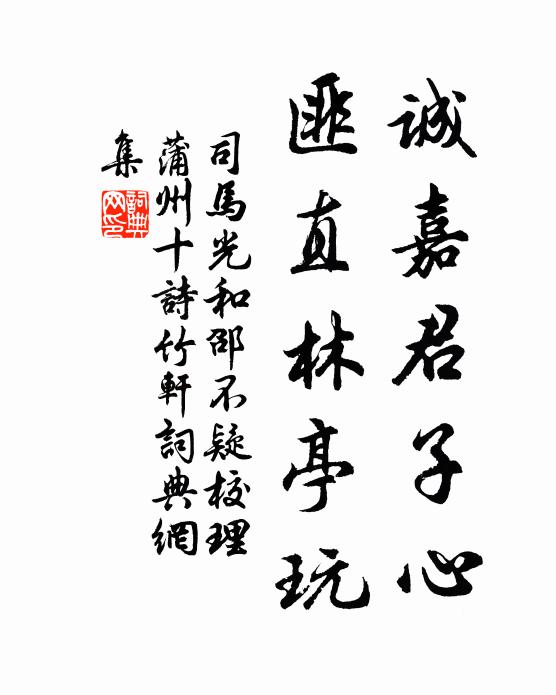 誠嘉君子心
匪直林亭玩
司馬光和邵不疑校理
蒲州十詩竹軒詞典網
集
詞典網印